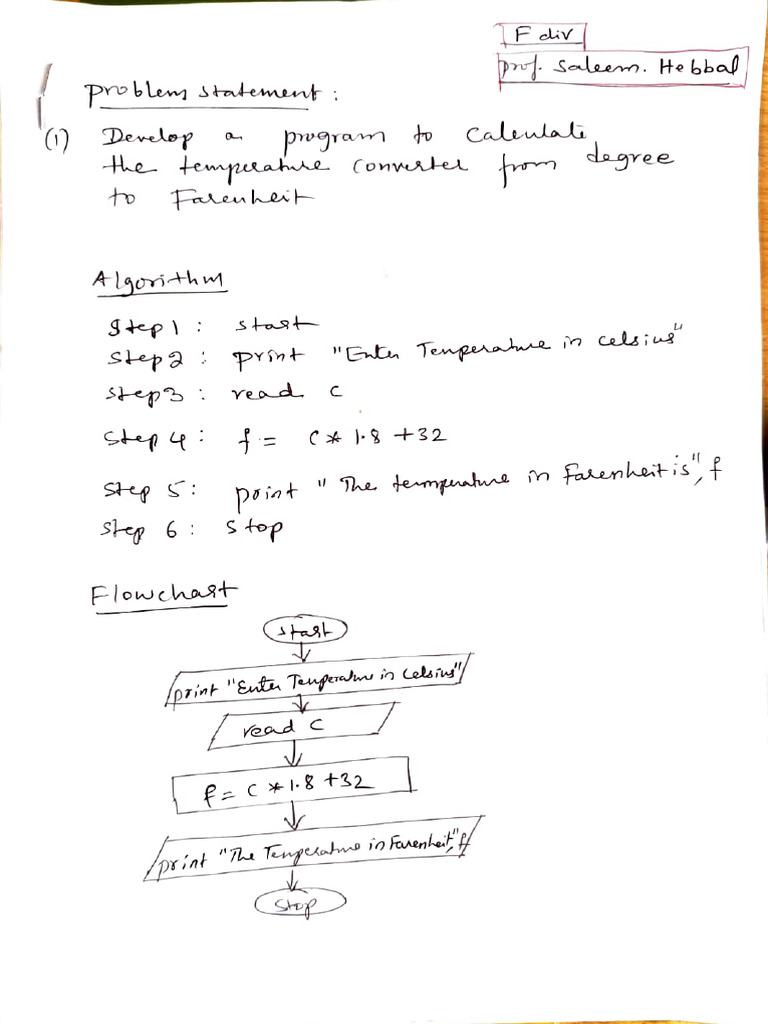 F div
prof. Saleem. Hebbal
Problem statement :
(1) Develop a program to calculate
the temperature converter from degree
to Farenheit
Algorithm
Step 1 : start
Step 2 : print "Enter Temperature in celsius"
Step 3 : read c
Step 4 : f = c * 1.8 + 32
Step 5 : print "The temperature in Farenheit is", f
Step 6 : stop
Flowchart
start
print "Enter Temperature in Celsius"
read c
f = c * 1.8 + 32
print "The Temperature in Farenheit", f
stop